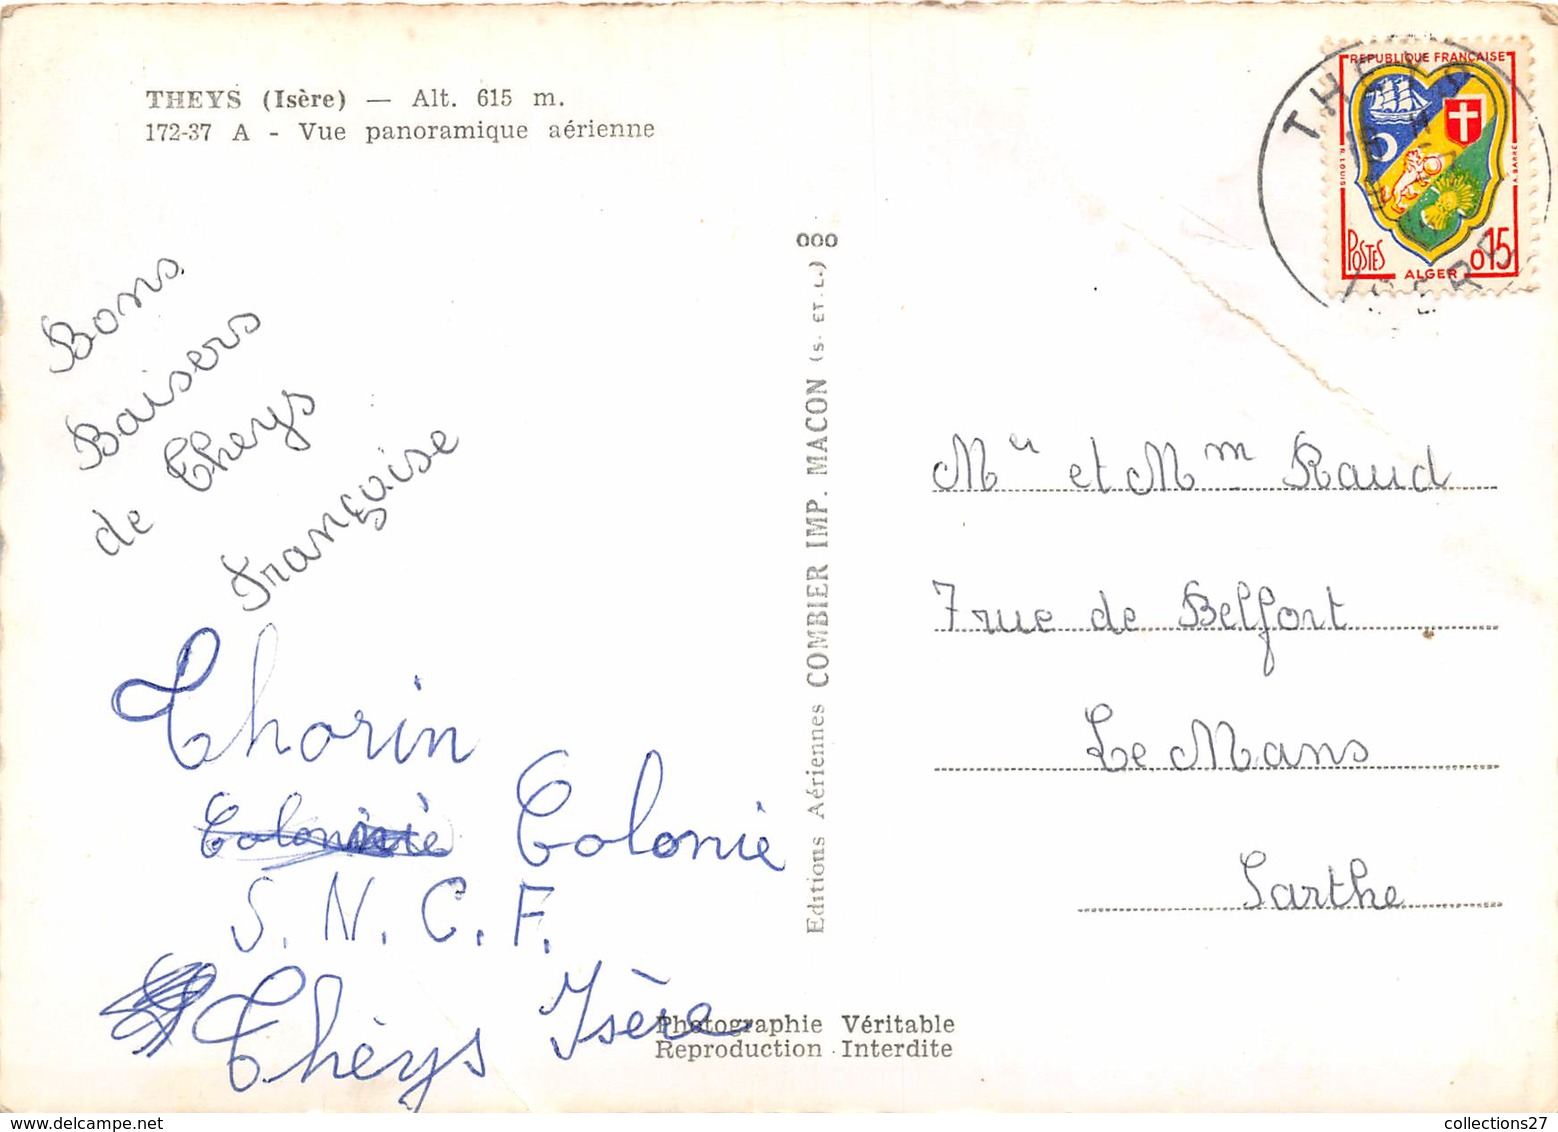 THEYS (Isère) — Alt. 615 m.
172-37 A - Vue panoramique aérienne
Bons
Baisers
de Theys
Françoise
Thorin
Colonie
S. N. C. F.
Thèys Isère
Editions Aériennes COMBIER IMP. MACON (S. ET. L.) 000
Photographie Véritable
Reproduction Interdite
THEYS
ISERE
REPUBLIQUE FRANÇAISE
POSTES
ALGER
0,15
R. LOUIS
A. BARRE
Mur et Mm Raud
7 rue de Belfort
Le Mans
Sarthe
collections27